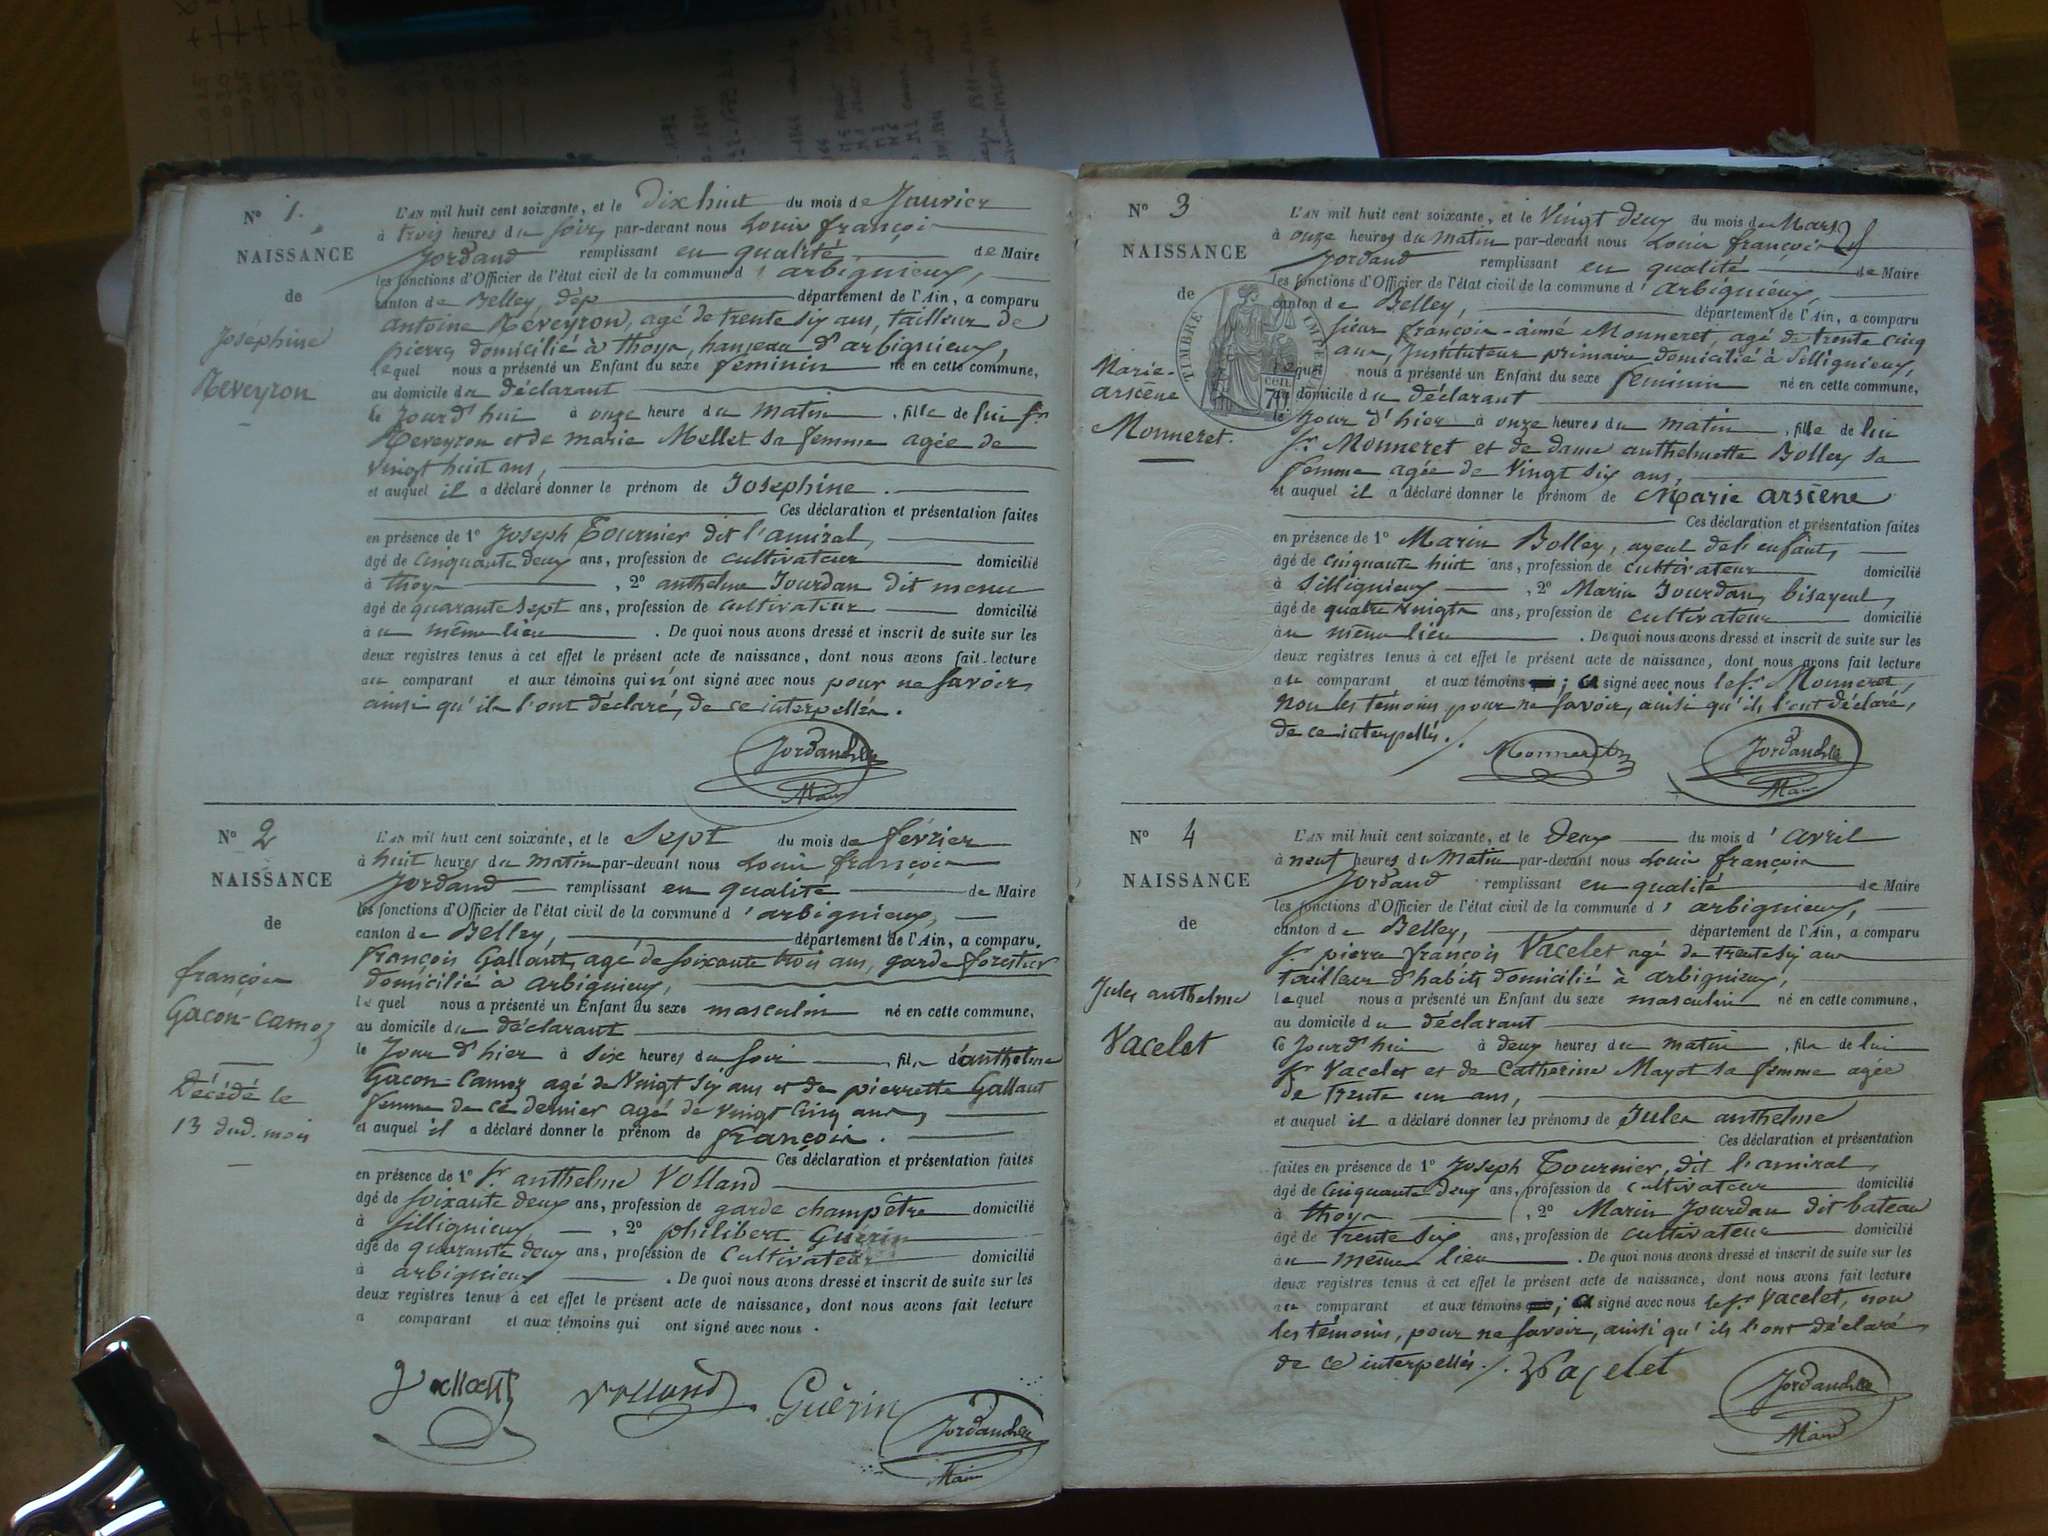 N° 1.
NAISSANCE
de
Joséphine
Reveyron
L'AN mil huit cent soixante, et le Dix huit du mois de Janvier
à trois heures du soir, par-devant nous Louis françois
Jordand remplissant en qualité de Maire
les fonctions d'Officier de l'état civil de la commune d'arbignieux,
canton de Belley, dép département de l'Ain, a comparu
antoine Reveyron, agé de trente six ans, tailleur de
pierres domicilié à thoys, hameau d'arbignieux,
lequel nous a présenté un Enfant du sexe féminin né en cette commune,
au domicile du déclarant
le Jourd'hui à onze heure du matin, fille de lui sr
Reveyron et de marie Mellet sa femme agée de
vingt huit ans,
et auquel il a déclaré donner le prénom de Joséphine.
Ces déclaration et présentation faites
en présence de 1° Joseph Tournier dit l'amiral,
âgé de cinquante deux ans, profession de cultivateur domicilié
à thoys, 2° anthelme Jourdan dit menu
âgé de quarante sept ans, profession de cultivateur domicilié
au même lieu. De quoi nous avons dressé et inscrit de suite sur les
deux registres tenus à cet effet le présent acte de naissance, dont nous avons fait lecture
au comparant et aux témoins qui n'ont signé avec nous pour ne savoir,
ainsi qu'ils l'ont déclaré, de ce interpellés.
Maire
N° 2
NAISSANCE
de
françois
Gacon-Camoz
Décédé le
13 dud. mois
L'AN mil huit cent soixante, et le sept du mois de février
à huit heures du matin par-devant nous Louis françois
Jordand remplissant en qualité de Maire
les fonctions d'Officier de l'état civil de la commune d'arbignieux,
canton de Belley, département de l'Ain, a comparu
françois Gallant, agé de soixante trois ans, garde forestier
domicilié à arbignieux,
lequel nous a présenté un Enfant du sexe masculin né en cette commune,
au domicile du déclarant
le Jour d'hier à six heures du soir, fils d'anthelme
Gacon-Camoz agé de vingt six ans et de pierrette Gallant
femme de ce dernier agé de vingt cinq ans,
et auquel il a déclaré donner le prénom de françois.
Ces déclaration et présentation faites
en présence de 1° sr anthelme Volland
âgé de soixante deux ans, profession de garde champêtre domicilié
à sillignieux, 2° philibert Guérin
âgé de quarante deux ans, profession de cultivateur domicilié
à arbignieux. De quoi nous avons dressé et inscrit de suite sur les
deux registres tenus à cet effet le présent acte de naissance, dont nous avons fait lecture
a comparant et aux témoins qui ont signé avec nous.
Volland Guérin
Maire
N° 3
NAISSANCE
de
TIMBRE IMPE
CEN. 70
Marie-
arsène
Monneret.
L'AN mil huit cent soixante, et le Vingt deux du mois de Mars
à onze heures du matin par-devant nous Louis françois
Jordand remplissant en qualité de Maire
les fonctions d'Officier de l'état civil de la commune d'arbignieux,
canton de Belley, département de l'Ain, a comparu
sieur françois-aimé Monneret, agé de trente cinq
ans, Instituteur primaire domicilié à Sillignieux,
lequel nous a présenté un Enfant du sexe féminin né en cette commune,
au domicile du déclarant
le Jour d'hier à onze heures du matin, fille de lui
sr Monneret et de dame anthelmette Bolley sa
femme agée de vingt six ans,
et auquel il a déclaré donner le prénom de Marie arsène
Ces déclaration et présentation faites
en présence de 1° Marin Bolley, ayeul de l'enfant,
âgé de cinquante huit ans, profession de cultivateur domicilié
à Sillignieux, 2° Marin Jourdan, bisayeul,
âgé de quatre vingts ans, profession de cultivateur domicilié
au même lieu. De quoi nous avons dressé et inscrit de suite sur les
deux registres tenus à cet effet le présent acte de naissance, dont nous avons fait lecture
au comparant et aux témoins ; a signé avec nous le sr Monneret,
non les témoins pour ne savoir, ainsi qu'ils l'ont déclaré,
de ce interpellés./.
Monneret
Maire
N° 4
NAISSANCE
de
Jules anthelme
Vacelet
L'AN mil huit cent soixante, et le deux du mois d'avril
à neuf heures du Matin par-devant nous Louis françois
Jordand remplissant en qualité de Maire
les fonctions d'Officier de l'état civil de la commune d'arbignieux,
canton de Belley, département de l'Ain, a comparu
sr pierre françois Vacelet agé de trente six ans
tailleur d'habits domicilié à arbignieux,
lequel nous a présenté un Enfant du sexe masculin né en cette commune,
au domicile du déclarant
ce Jourd'hui à deux heures du matin, fils de lui
sr Vacelet et de Catherine Mayot sa femme agée
de trente un ans,
et auquel il a déclaré donner les prénoms de Jules anthelme
Ces déclaration et présentation
faites en présence de 1° Joseph Tournier, dit l'amiral,
âgé de cinquante deux ans, profession de cultivateur domicilié
à thoys, 2° Marin Jourdan dit bateau
âgé de trente six ans, profession de cultivateur domicilié
au même lieu. De quoi nous avons dressé et inscrit de suite sur les
deux registres tenus à cet effet le présent acte de naissance, dont nous avons fait lecture
au comparant et aux témoins ; a signé avec nous le sr Vacelet, non
les témoins, pour ne savoir, ainsi qu'ils l'ont déclaré
de ce interpellés./. Vacelet
Maire